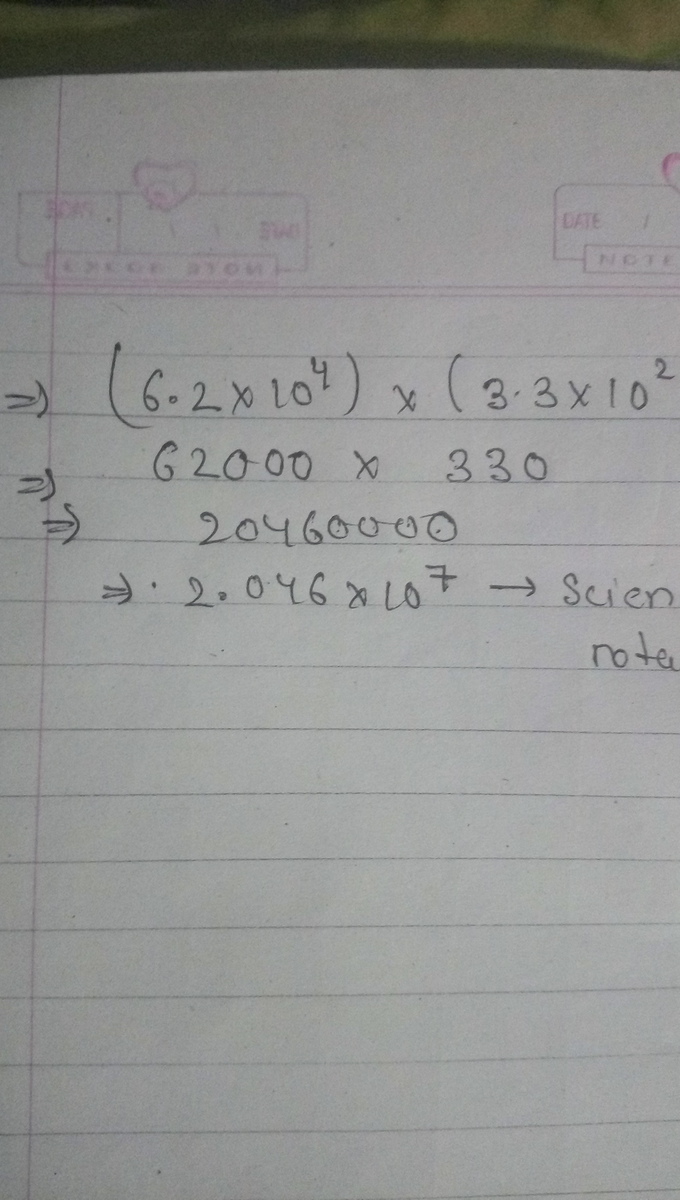 DATE /
NOTE
⇒ (6.2 × 10⁴) × (3.3 × 10²
⇒ 62000 × 330
⇒ 20460000
⇒ 2.046 × 10⁷ → Scien
nota